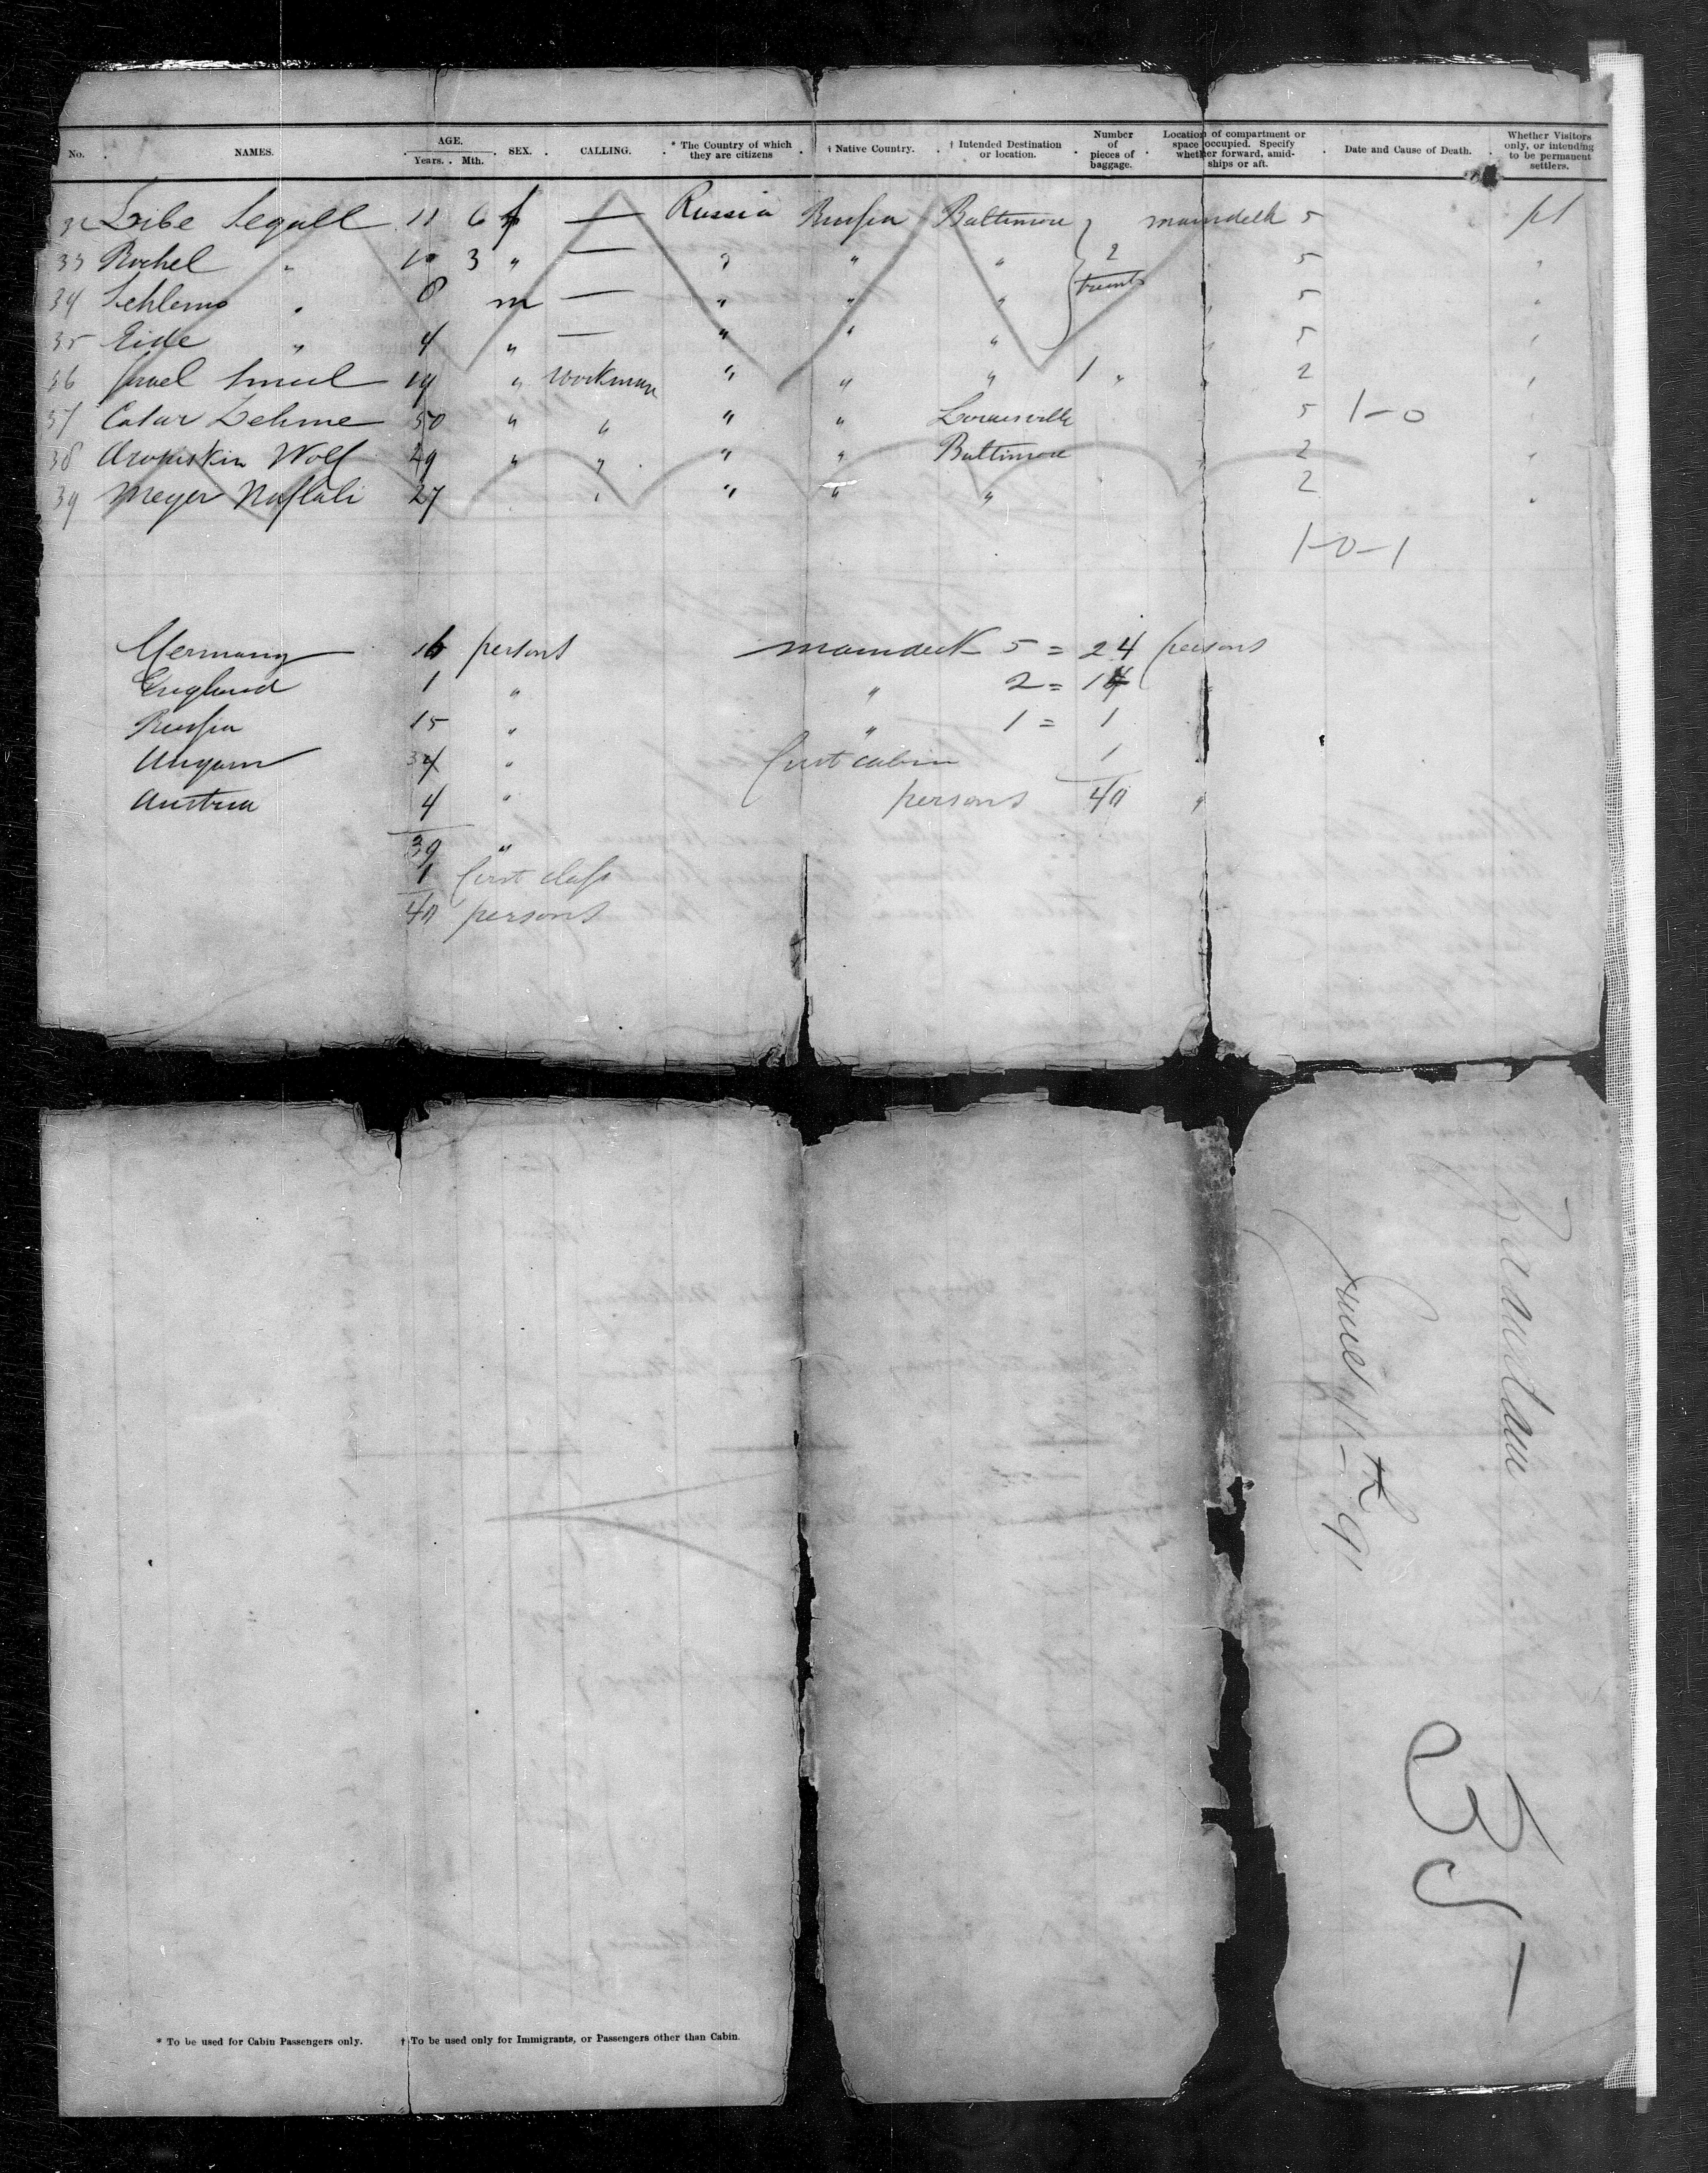 No. NAMES. AGE. Years. Mth. SEX. CALLING. * The Country of which they are citizens † Native Country. † Intended Destination or location. Number of pieces of baggage. Location of compartment or space occupied. Specify whether forward, amidships or aft. Date and Cause of Death. Whether Visitors only, or intending to be permanent settlers.
Segall 11 6 f — Russia Russia Baltimore maindeck 5
33 Rochel " 10 3 " — " " " 2 5 "
34 " 8 m — " " " trunks " 5 "
35 " 4 " — " " " " 5 "
36 19 " Workman " " " 1 " " 2 "
37 50 " " " " 5 1-0
38 Wolf 29 " " " " Baltimore " 2 "
39 Meyer Naftali 27 " " " " " 2 "
1-0-1
Germany 16 persons maindeck 5 = 24 persons
England 1 " " 2 =
Russia 15 " " 1 = 1
Ungarn "  first cabin 1 "
Austria 4 " persons 40 "
39 "
1 first class
40 persons
* To be used for Cabin Passengers only. † To be used only for Immigrants, or Passengers other than Cabin.
35 —